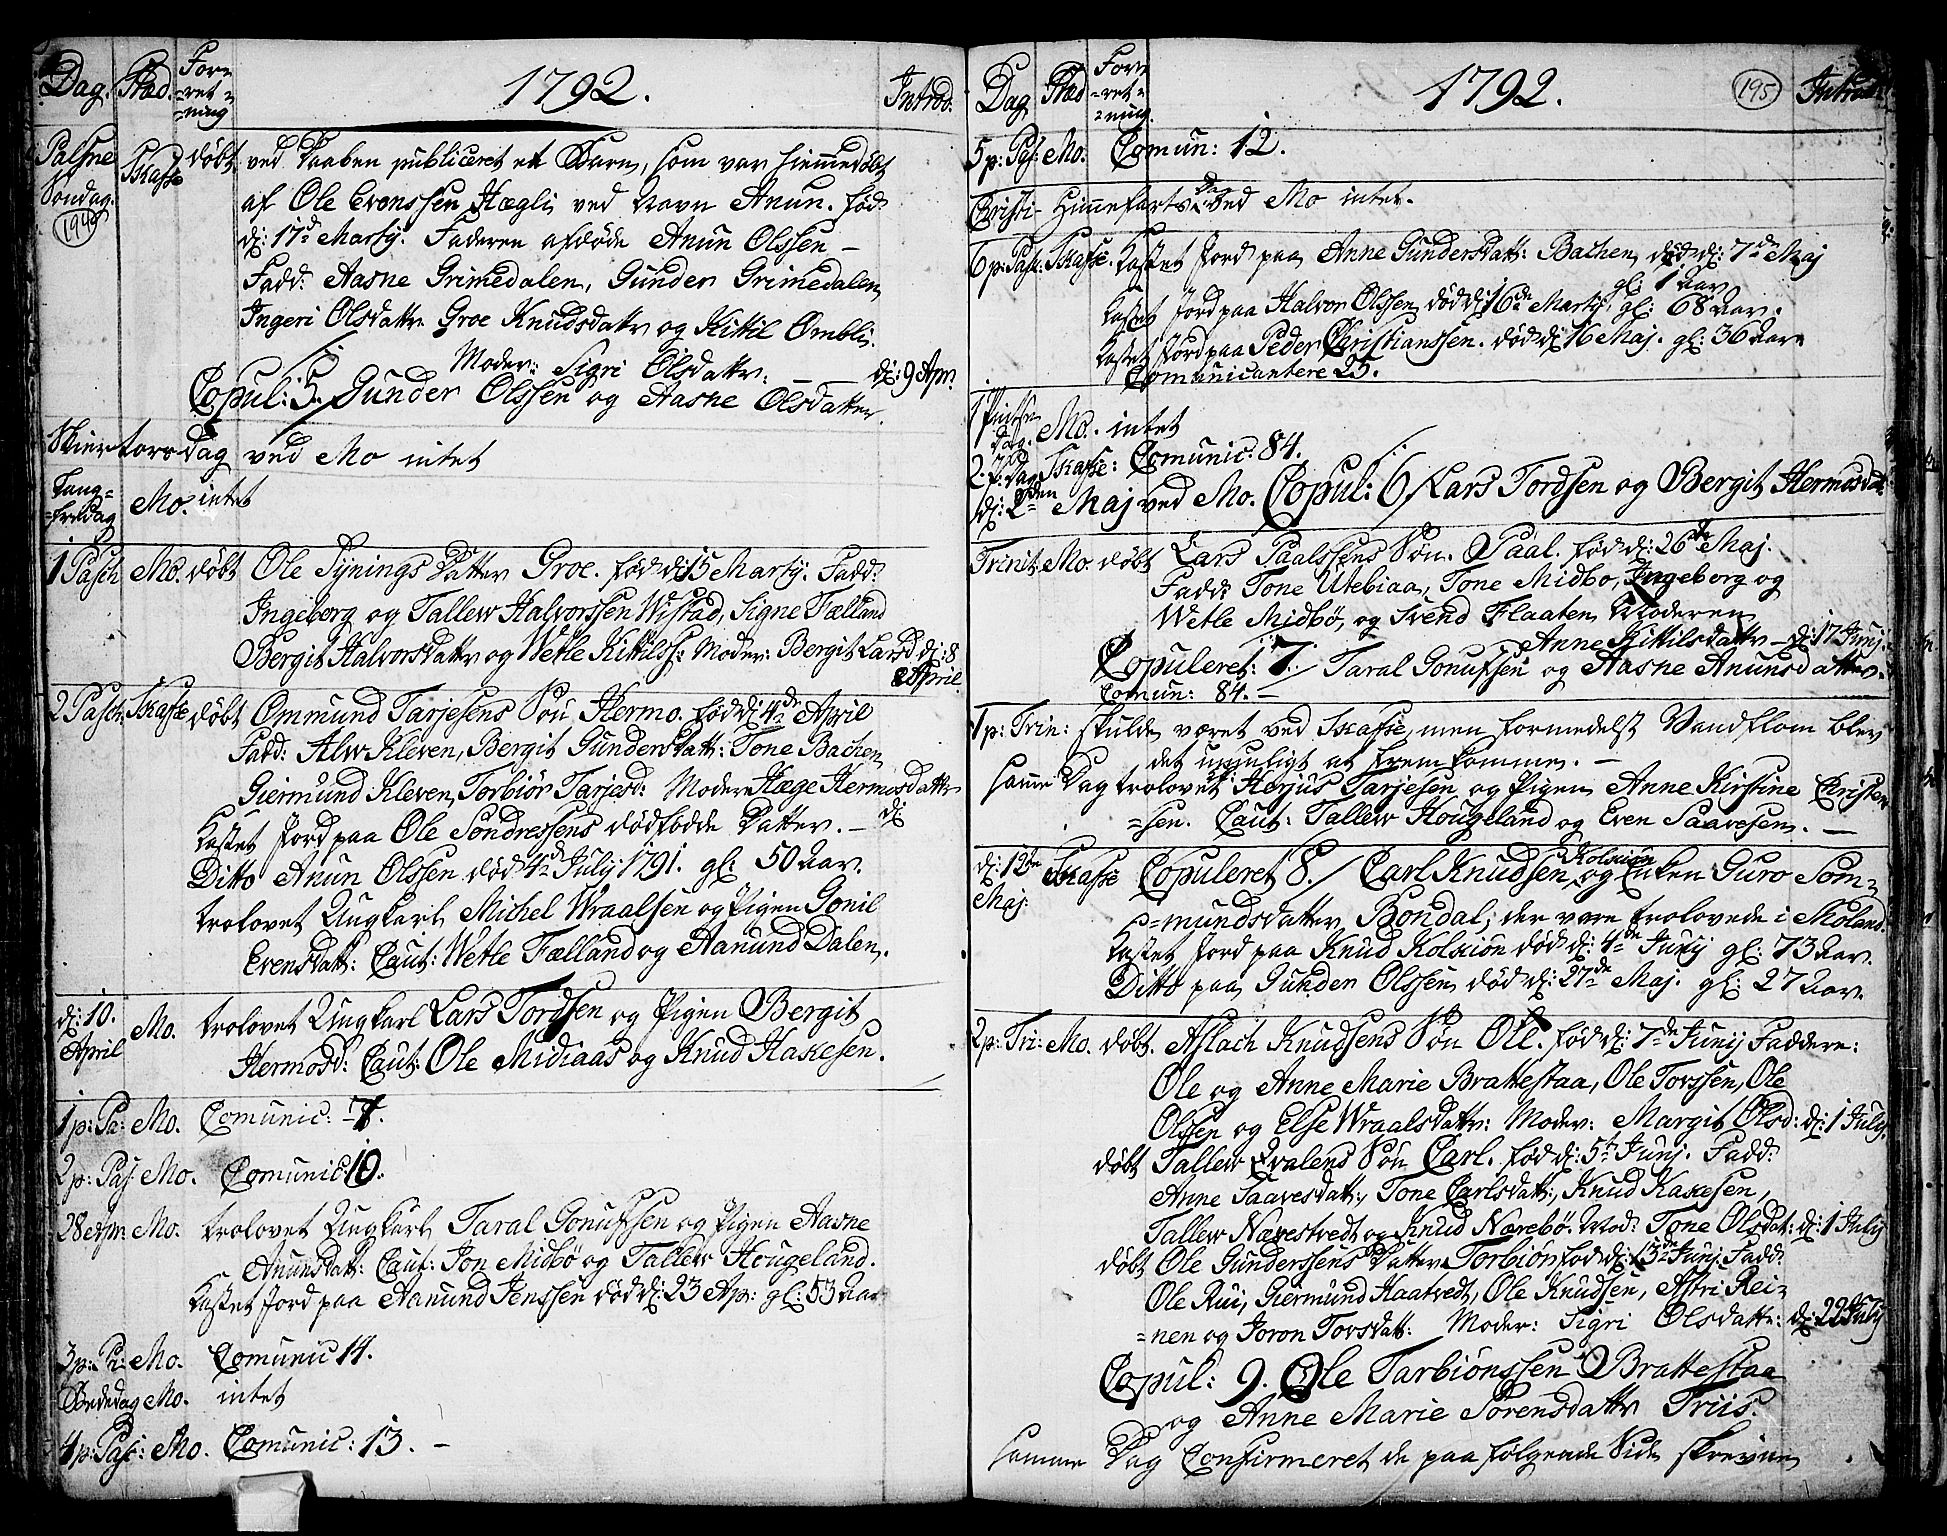 Dag. Stæd. For= =ret= =ning 1792. Introd.
Palme Søndag. Skafse døbt ved Daaben publiceret et Barn, som var hiemmedøbt
194
af Ole Evenssen Hægli ved Navn Anun. fød
d: 17de Marty. Faderen afdøde Anun Olssen –
Fadd: Aasne Grimedalen, Gunder Grimedalen
Ingeri Olsdattr Groe Knudsdattr og Kittil Ombli.
Moder: Sigri Olsdattr. – d: 9 Apr.
Copul: 5. Gunder Olssen og Aasne Olsdatter.
Skiertorsdag ved Mo intet
Lang= =fredag Mo. intet
1 Pasch Mo. døbt Ole Tynings Datter Groe. fød d: 15 Marty. Fadd:
Ingeborg og Tallew Halvorssen Wistad, Signe Fælland
Bergit Halvorsdattr og Wetle Kittilss: Moder: Bergit Larsd d: 8
April.
2 Pasch Skafse døbt Ommund Tarjesens Søn Hermo. fød d: 4de April
Fadd: Alw Kleven, Bergit Gundersdatt: Tone Bachen
Giermund Kleven, Torbiør Tarjesd: Moder Hæge Hermosdattr
d:
Kastet Jord paa Ole Sondressens dødfødde Datter. –
Ditto Anun Olssen død 4de July 1791. gl: 50 Aar.
trolovet Ungkarl Michel Wraalsen og Pigen Gonil
Evensdatt: Caut: Wetle Fælland og Aanund Dalen.
d: 10. April Mo. trolovet Ungkarl Lars Tordsen og Pigen Bergit
Hermosd: Caut: Ole Midiaas og Knud Hakesen.
1 p: Pa: Mo. Comunic: 7.
2 p: Pas: Mo. Comunic: 10.
28 Apr: Mo. trolovet Ungkarl Taral Gonufssen og Pigen Aasne
Anunsdatt: Caut: Jon Midbø og Tallew Hougeland.
Kastet Jord paa Aanund Jenssen død d: 23 Ap: gl: 53 Aar
3 p: Pa: Mo. Comunic 14.
Bededag Mo. intet
4 p: Pas: Mo. Comunic: 13. –
Dag Stæd For= =ret= =ning. 1792. 195 Introd
5 p: Pas: Mo. Comun: 12.
Christi Himmelfarts Dag ved Mo intet.
6 p: Pas: Skafse. Kastet Jord paa Anne Gundersdatt: Bachen død d: 7de Maj
gl: 1 Aar
Kastet Jord paa Halvor Olssen død d: 16de Marty gl: 68 Aar.
Kastet Jord paa Peder Christianssen. død d: 16 Maj. gl: 36 Aar
Comunicantere 25.
1 Pintse Dag. Mo. intet
2. P: Dag Skafse: Comunic: 84.
d: 2den Maj ved Mo. Copul: 6 / Lars Tordsen og Bergit Hermosdat
Trinit: Mo. døbt Lars Paalssens Søn. Paal. fød d: 26de Maj.
Fadd: Tone Utebiaa, Tone Midbo, Ingeborg og
Wetle Midbö, og Svend Flaaten Moderen
Anne Kittilsdattr – d: 17 Junj.
Copuleret: 7. / Taral Gonufssen og Aasne Anunsdatter.
Comun: 84. –
1 p: Trin: skulde været ved Skafse, men formedelst Vandflom blev
det umuligt at fremkomme. –
samme Dag trolovet Herjus Tarjesen og Pigen Anne Kirstine Christen
=sen. Caut: Tallew Hougeland og Even Saavesen. –
d: 12te Maj. Skafse Copuleret 8. / Carl Knudsen Kolsiøn og Enken Guro Som=
=mundsdatter Bondal; der vare trolovede i Moland.
Kastet Jord paa Knud Kolsiøn død d: 4de Junj gl: 73 Aar.
Ditto paa Gunder Olssen død d: 27de Maj. gl: 27 Aar.
2 p: Tri: Mo. døbt. Aslach Knudsens Søn Ole. fød d: 7de Junij Faddere:
Ole og Anne Marie Brattestaa, Ole Torssen, Ole
Olssen og Else Wraalsdattr: Moder: Margit Olsd: d: 1 July.
døbt Tallew Qvalens Søn Carl. fød d: 5te Junj. Fadd:
Anne Saavesdatt:, Tone Carlsdatt:, Knud Kakesen,
Tallew Nævestvedt og Knud Nærebö. Mod: Tone Olsdat: d: 1 July
døbt Ole Gunderssens Datter Torbion fød d: 13de Junj. Fadd:
Ole Rui, Giermund Haatvedt, Ole Knudsen, Astri Rei=
=nen og Joron Torsdatt: Moder: Sigri Olsdatte: d: 22 July
Copul: 9. Ole Tarbiönssen Brattestaa
og Anne Marie Sorensdattr Triis.
samme Dag Confirmeret de paa følgende Side skrevne